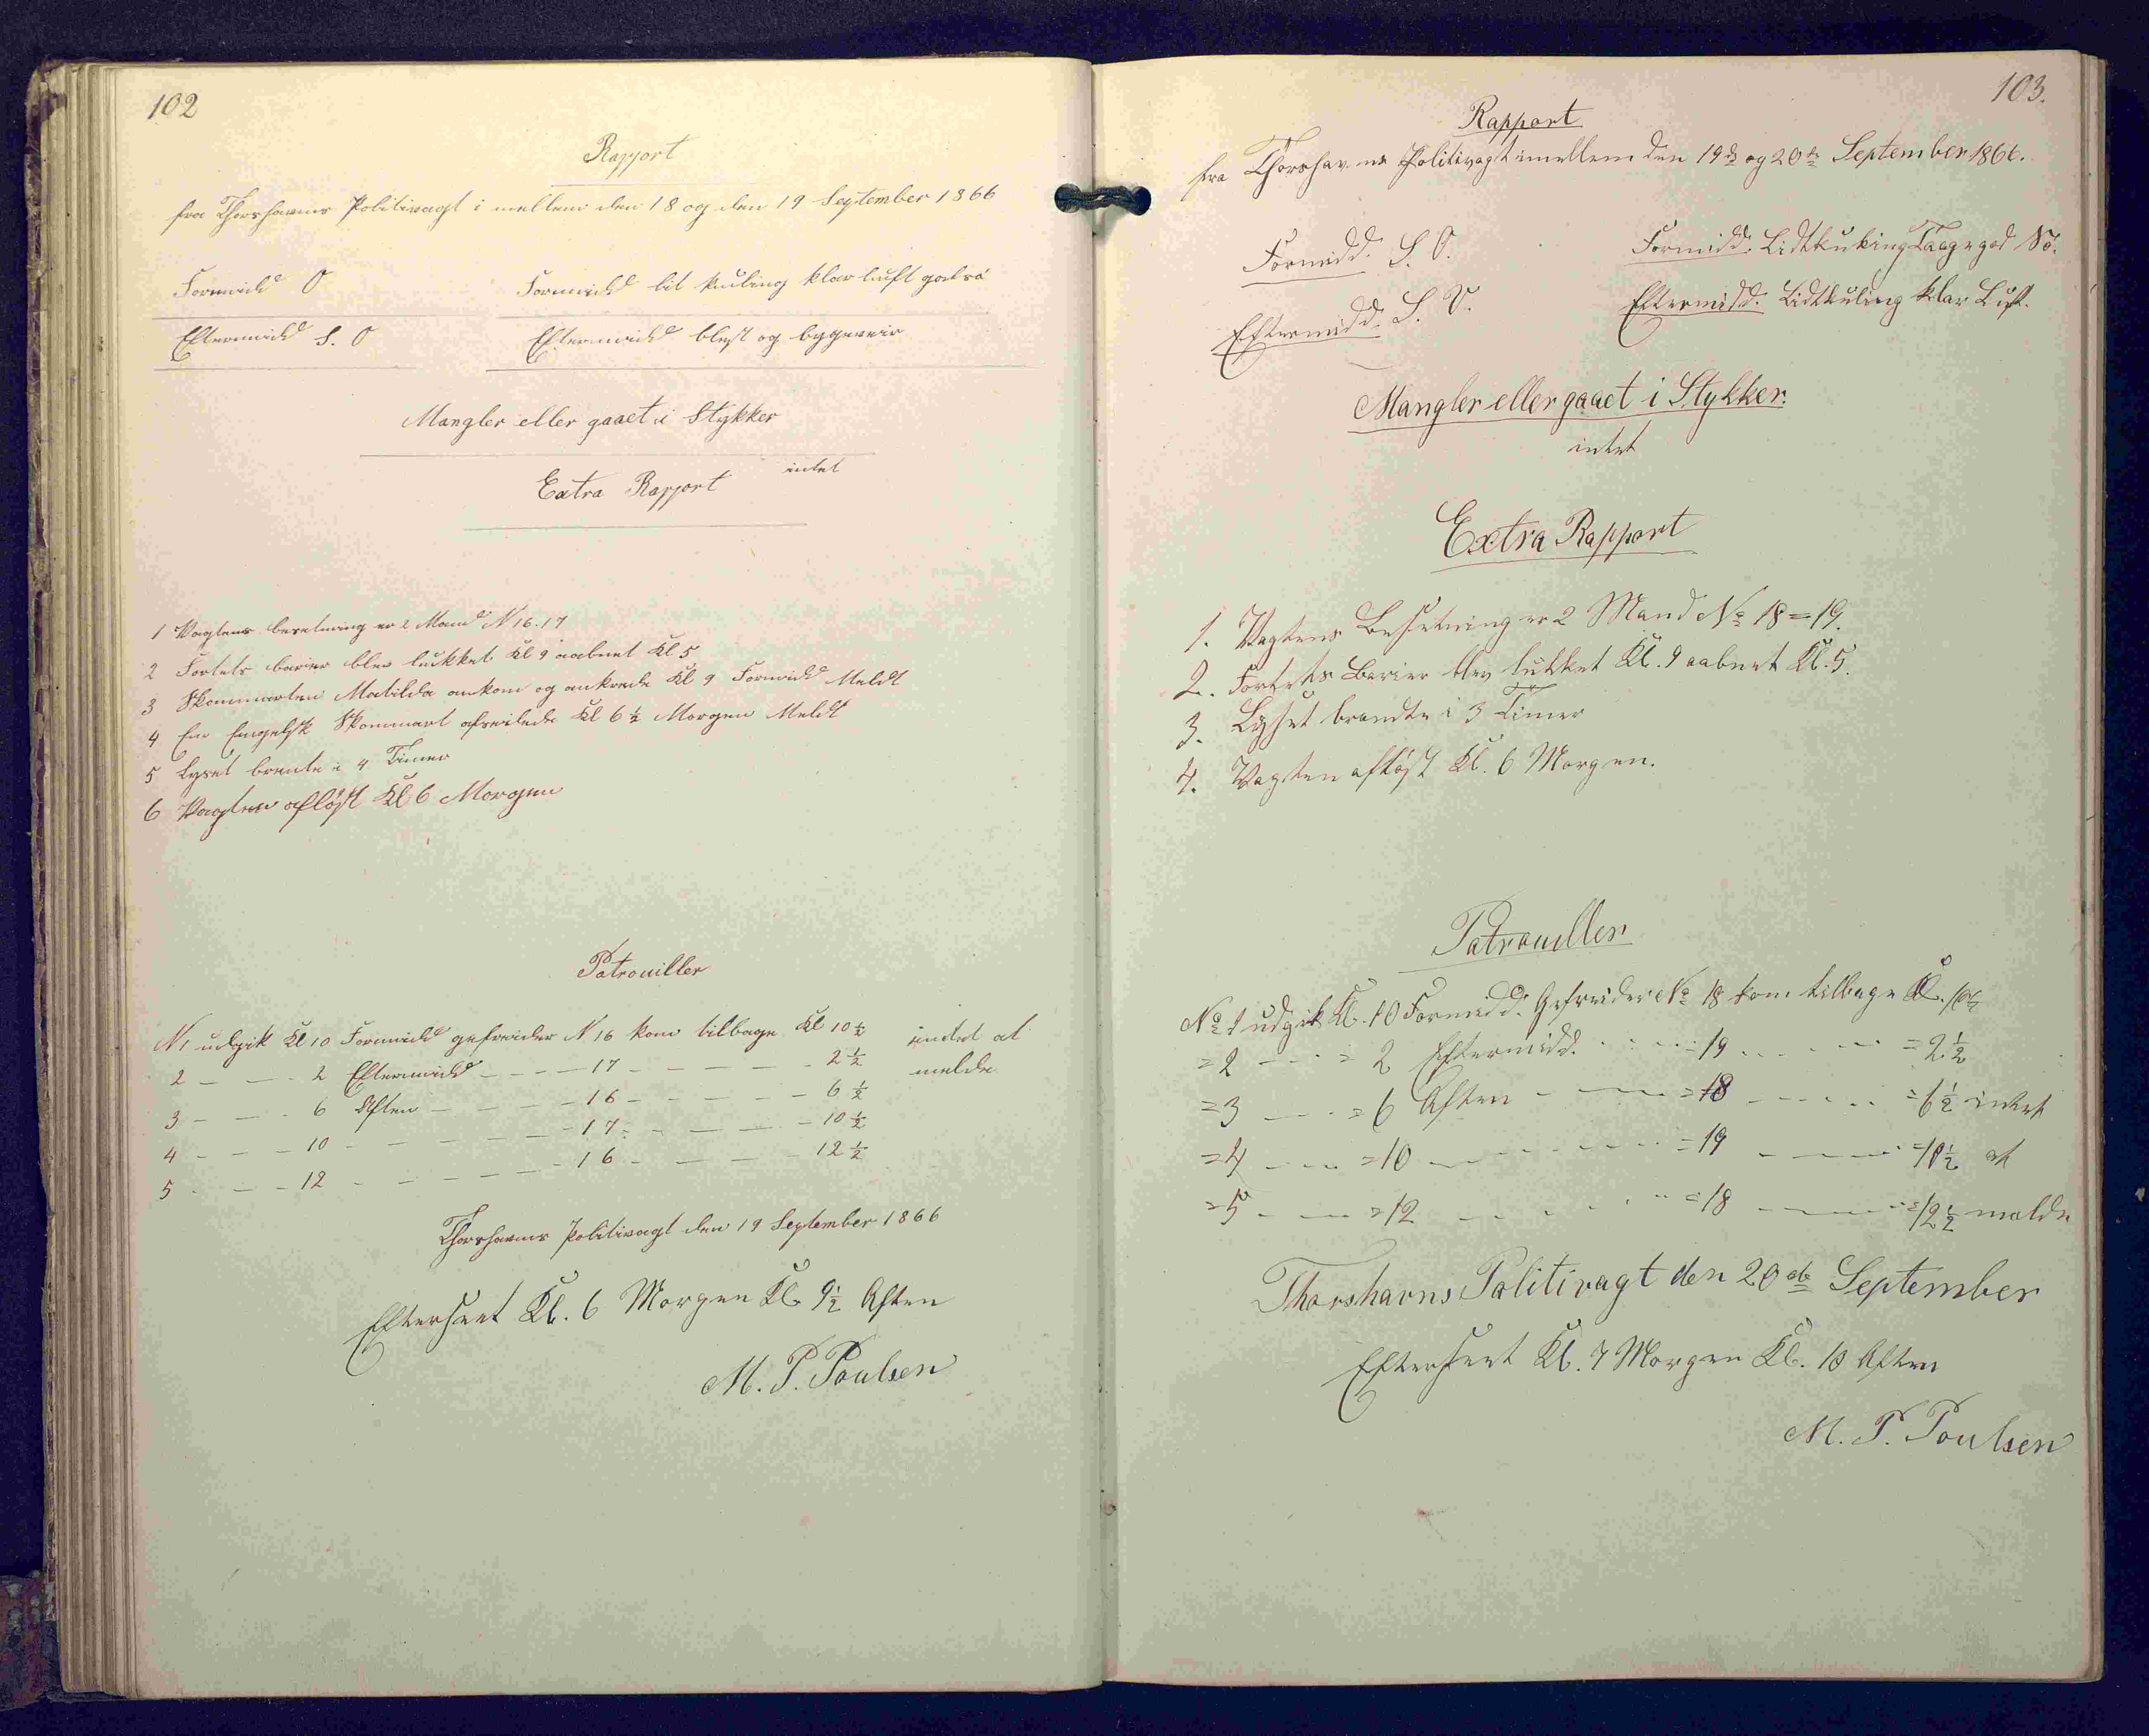 102
Rapport
fra Thorshavns Politivagt i mellem den 18 og den 19 September 1866
Formidd O Formidd lit kuling klar luft godsö
Eftermidd S. O Eftermidd blest og bygeveir
Mangler eller gaaet i Stykker
intet
Extra Rapport
1 Vagtens besetning er 2 Mand N 16. 17
2 Fortets barier blev lukket Kl 9 aabnet Kl 5
3 Skonnarten Matilda ankom og ankrede Kl 9 Formidd Meldt
4 En Engelsk Skonnart afseilede Kl 6 ½ Morgen Meldt
5 Lyset brente i 4 Timer
6 Vagten afløst Kl 6 Morgen
Patrouiller
N 1 udgik Kl 10 Formidd gefreider N 16 kom tilbage Kl 10 ½ intet at
2 - - - 2 Eftermidd - - - - 17 - - - - - 2 ½ melde
3 - - - 6 Aften - - - - 16 - - - - - 6 ½
4 - - - 10 - - - - - - 17 - - - - - 10 ½
5 - - - 12 - - - - - - 16 - - - - - 12 ½
Thorshavns Politivagt den 19 September 1866
Efterseet Kl. 6 Morgen Kl. 9½ Aften
M. P. Poulsen
103.
Rapport
fra Thorshavns Politivagt imellem den 19de og 20de September 1866.
Formidd. S. O. Formidd. Lidtkuling Taage god Sö.
Eftermidd. S. V. Eftermidd. Lidtkuling klar Luft.
Mangler eller gaaet i Stykker.
intet
Extra Rapport
1. Vagtens Besetning er 2 Mand No 18 = 19.
2. Fortets Barier blev lukket Kl. 9 aabnet Kl. 5.
3. Lyset brendte i 3 Timer
4. Vagten afløst Kl. 6 Morgen.
Patrouiller
No 1 udgik Kl. 10 Formidd. Gefreider No 18 kom tilbage Kl. 10½
= 2 - - - = 2 Eftermidd. - - - = 19 - - - - = 2½
= 3 - - - = 6 Aften - - - = 18 - - - - = 6½ intet
= 4 - - - = 10 - - - - - = 19 - - - - = 10½ at
= 5 - - - = 12 - - - - - = 18 - - - - = 12½ melde
Thorshavns Politivagt den 20de September
Efterseet Kl. 7 Morgen Kl. 10 Aften
M. P. Poulsen